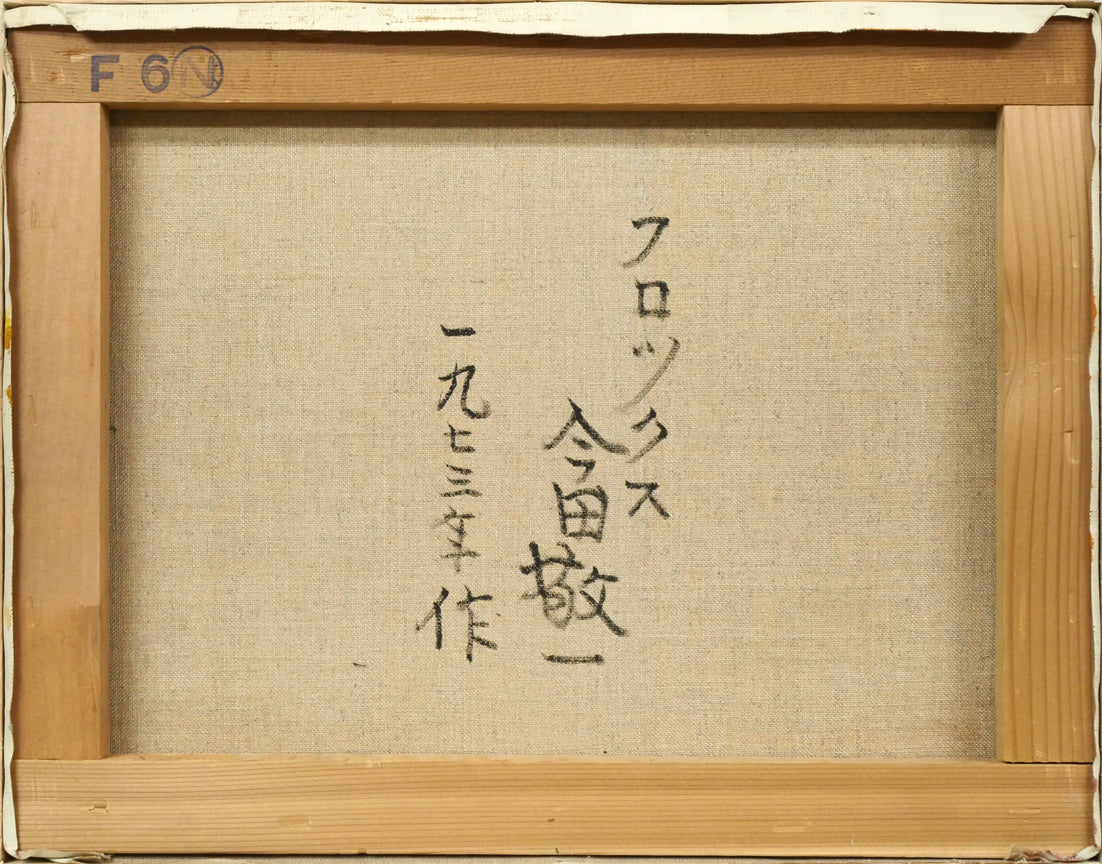 F6Ⓝ
フロツクス
今田敬一
一九七三年作